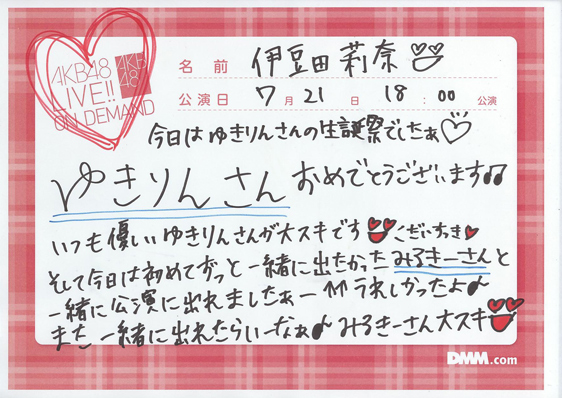 AKB48
LIVE!!
ON DEMAND
AKB
48
名前 伊豆田莉奈
公演日 7月21日 18:00公演
今日はゆきりんさんの生誕祭でしたぁ♡
ゆきりんさん おめでとうございます♫
いつも優しいゆきりんさんが大スキです ございちゅき♥
そして今日は初めてずっと一緒に出たかったみるきーさんと
一緒に公演に出れましたぁー うれしかったよ♪
また一緒に出れたらいーなぁ♪みるきーさん大スキ
DMM.com